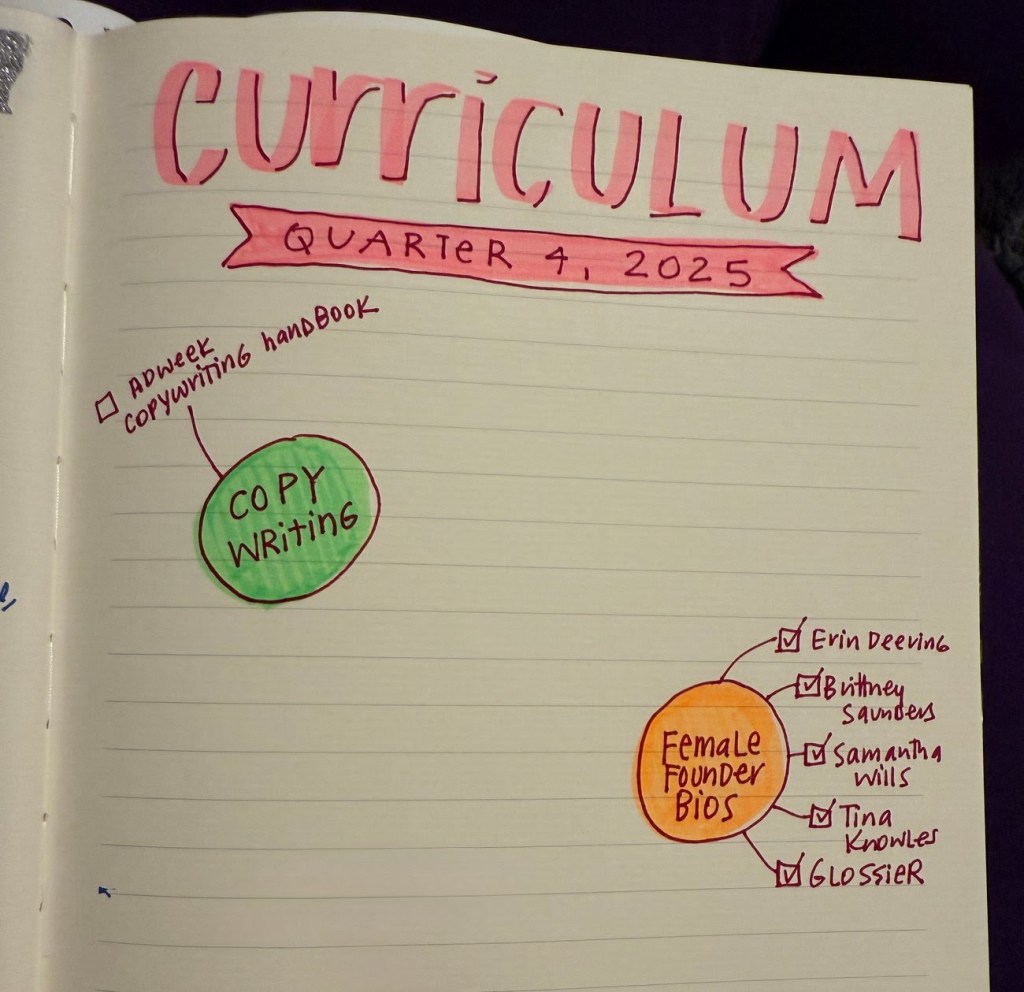 CURRICULUM
QUARTER 4, 2025
ADWEEK
COPYWRITING HANDBOOK
COPY
WRITING
Erin Deering
Brittney
Saunders
Samantha
Wills
Tina
Knowles
GLOSSIER
FEMALE
FOUNDER
BIOS